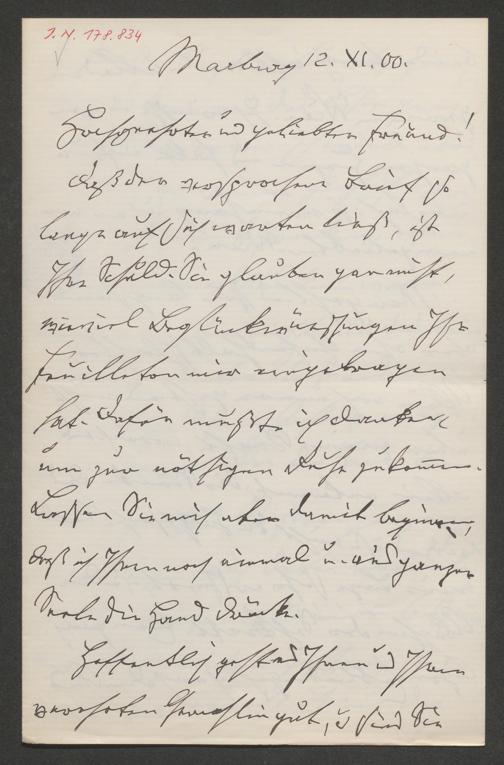 I. N. 178.834
Marburg 12. XI. 00.
Hochverehrter und geliebter Freund!
Daß der versprochene Brief so
lange auf sich warten ließ, ist
Ihre Schuld. Sie glauben gar nicht,
wieviel Beglückwünschungen Ihr
Feuilleton mir eingetragen
hat. Dafür mußte ich danken,
um zur nöthigen Ruhe zu kommen.
Lassen Sie mich aber damit beginnen,
daß ich Ihnen noch einmal u. aus ganzer
Seele die Hand drücke.
Hoffentlich geht es Ihnen und Ihrer
verehrten Gemahlin gut, u sind Sie